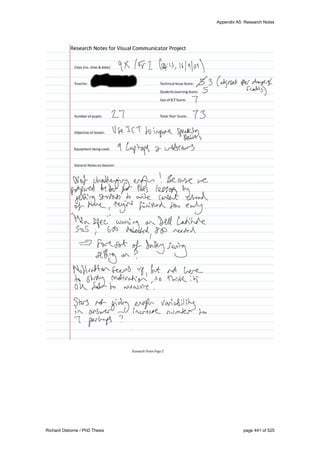 Appendix A5: Research Notes
Research Notes for Visual Communicator Project
Class (inc. time & date): 9X /
Teacher: Technical Issue Score: 3 (adjusted after changing of scales)
Students Learning Score: 5
Use of ICT Score: 7
Number of pupils: 27 Total 'Star' Score: 73
Objective of lesson: Use ICT to improve speaking
Equipment being used: 9 laptops, 2 webcams
General Notes on lesson:
Not challenging enough! Because we
prepared better for this lesson by
getting students to write content ahead
of time, they finished too early
'Min spec' warning on Dell Latitude
505, 600 detected, 800 needed
⇒ Fore out of battery saving
setting on?
Motivation seems up, but not here
to study motivation, so think it's
OK not to measure.
Stars not giving enough variability
in answer – increase number to
7 perhaps?
Research Notes Page 2
Richard Osborne / PhD Thesis page 441 of 525